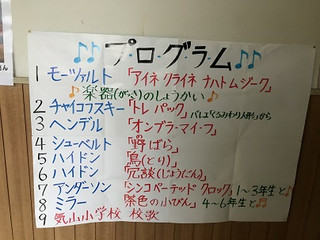 プ・ロ・グ・ラ・ム
1 モーツァルト 「アイネ クライネ ナハトムジーク」
楽器(がっき)のしょうかい
2 チャイコフスキー 「トレパック」 バレエ「くるみわり人形」から
3 ヘンデル 「オンブラ・マイ・フ」
4 シューベルト 「野ばら」
5 ハイドン 「鳥(とり)」
6 ハイドン 「冗談(じょうだん)」
7 アンダーソン 「シンコペーテッド クロック」 1〜3年生と
8 ミラー 「茶色の小びん」 4〜6年生と
9 気小小学校 校歌